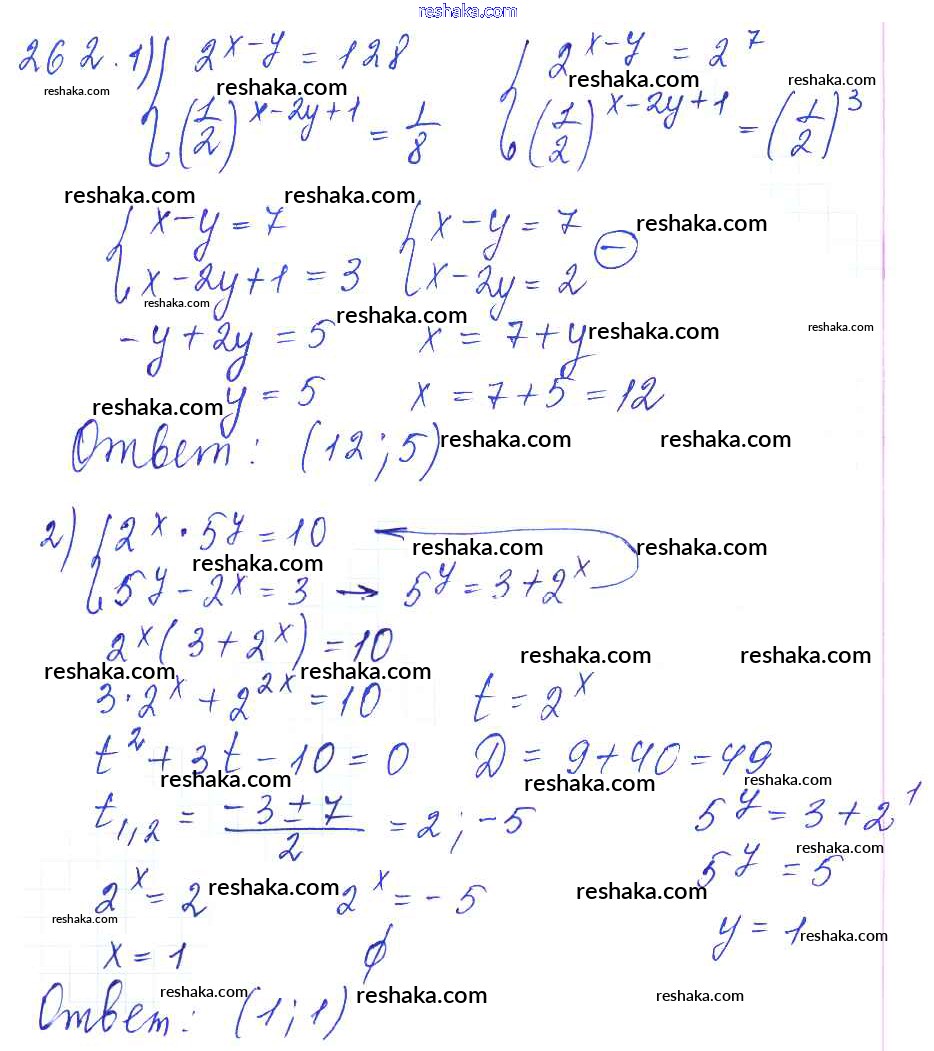 reshaka.com
262. 1) { 2^{x-y} = 128 { 2^{x-y} = 2^7
reshaka.com reshaka.com reshaka.com reshaka.com
(1/2)^{x-2y+1} = 1/8 (1/2)^{x-2y+1} = (1/2)^3
reshaka.com reshaka.com
{ x-y = 7 { x-y = 7 reshaka.com
x-2y+1 = 3 x-2y = 2 ⊖
reshaka.com reshaka.com
-y+2y = 5 x = 7+y reshaka.com reshaka.com
y = 5 x = 7+5 = 12
reshaka.com
Ответ: (12; 5) reshaka.com reshaka.com
2) { 2^x · 5^y = 10
reshaka.com reshaka.com reshaka.com
5^y - 2^x = 3 → 5^y = 3+2^x
2^x (3+2^x) = 10
reshaka.com reshaka.com reshaka.com reshaka.com
3·2^x + 2^{2x} = 10 t = 2^x
t^2 + 3t - 10 = 0 D = 9+40 = 49
reshaka.com reshaka.com reshaka.com
t_{1,2} = (-3 ± 7)/2 = 2; -5 5^y = 3+2^1
reshaka.com
5^y = 5
2^x = 2 reshaka.com 2^x = -5 reshaka.com
reshaka.com y = 1 reshaka.com
x = 1 ∅
reshaka.com reshaka.com reshaka.com
Ответ: (1; 1)